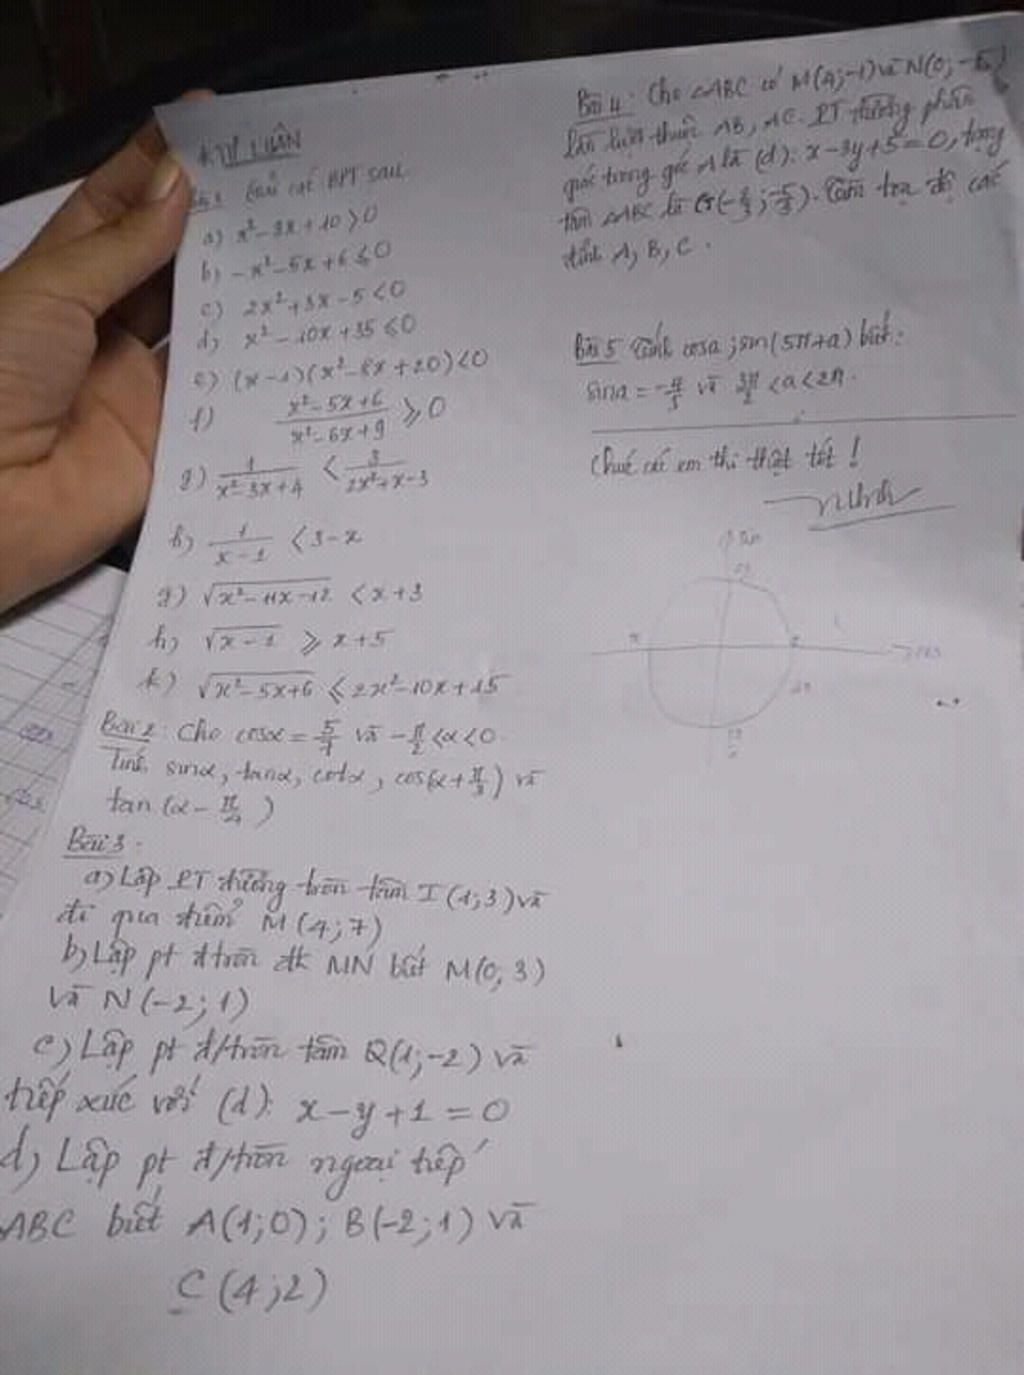 * TỰ LUẬN
Bài 1 Giải các BPT sau
a) x² - 3x + 10 > 0
b) -x² - 5x + 6 ≤ 0
c) 2x² + 3x - 5 < 0
d) x² - 10x + 35 ≤ 0
e) (x - 1)(x² - 8x + 20) < 0
f) (x² - 5x + 6)/(x² - 6x + 9) ≥ 0
g) 1/(x² - 3x + 4) < 3/(2x² + x - 3)
h) 1/(x - 1) < 3 - x
g) √(x² - 11x - 12) < x + 3
h) √(x - 1) ≥ x + 5
k) √(x² - 5x + 6) ≤ 2x² - 10x + 15
Bài 2: Cho cosα = 5/7 và -π/2 < α < 0.
Tính sinα, tanα, cotα, cos(α + π/3) và
tan(α - π/4)
Bài 3.
a) Lập PT đường tròn tâm I(1; 3) và
đi qua điểm M(4; 7)
b) Lập pt đ tròn đk MN biết M(0; 3)
và N(-2; 1)
c) Lập pt đ/tròn tâm Q(1; -2) và
tiếp xúc với (d): x - y + 1 = 0
d) Lập pt đ/tròn ngoại tiếp
ABC biết A(1; 0); B(-2; 1) và
C(4; 2)
Bài 4: Cho △ABC có M(4; -1) và N(0; -5)
lần lượt thuộc AB, AC. PT đường phân
giác trong góc A là (d): x - 3y + 5 = 0, trọng
tâm △ABC là G(-2/3; -5/3). Tìm tọa độ các
đỉnh A, B, C.
Bài 5 Tính cosa; sin(5π + a) biết:
sina = và 3π/2 < a < 2π.
Chúc các em thi thật tốt!
sin
π